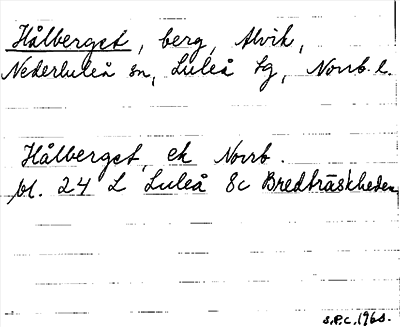 Hålberget, berg, Alvik,
Nederluleå sn, Luleå tg, Norrb. l.
Hålberget, ek Norrb.
bl. 24 L Luleå 8c Bredträskheden
S.P.C. 1960.